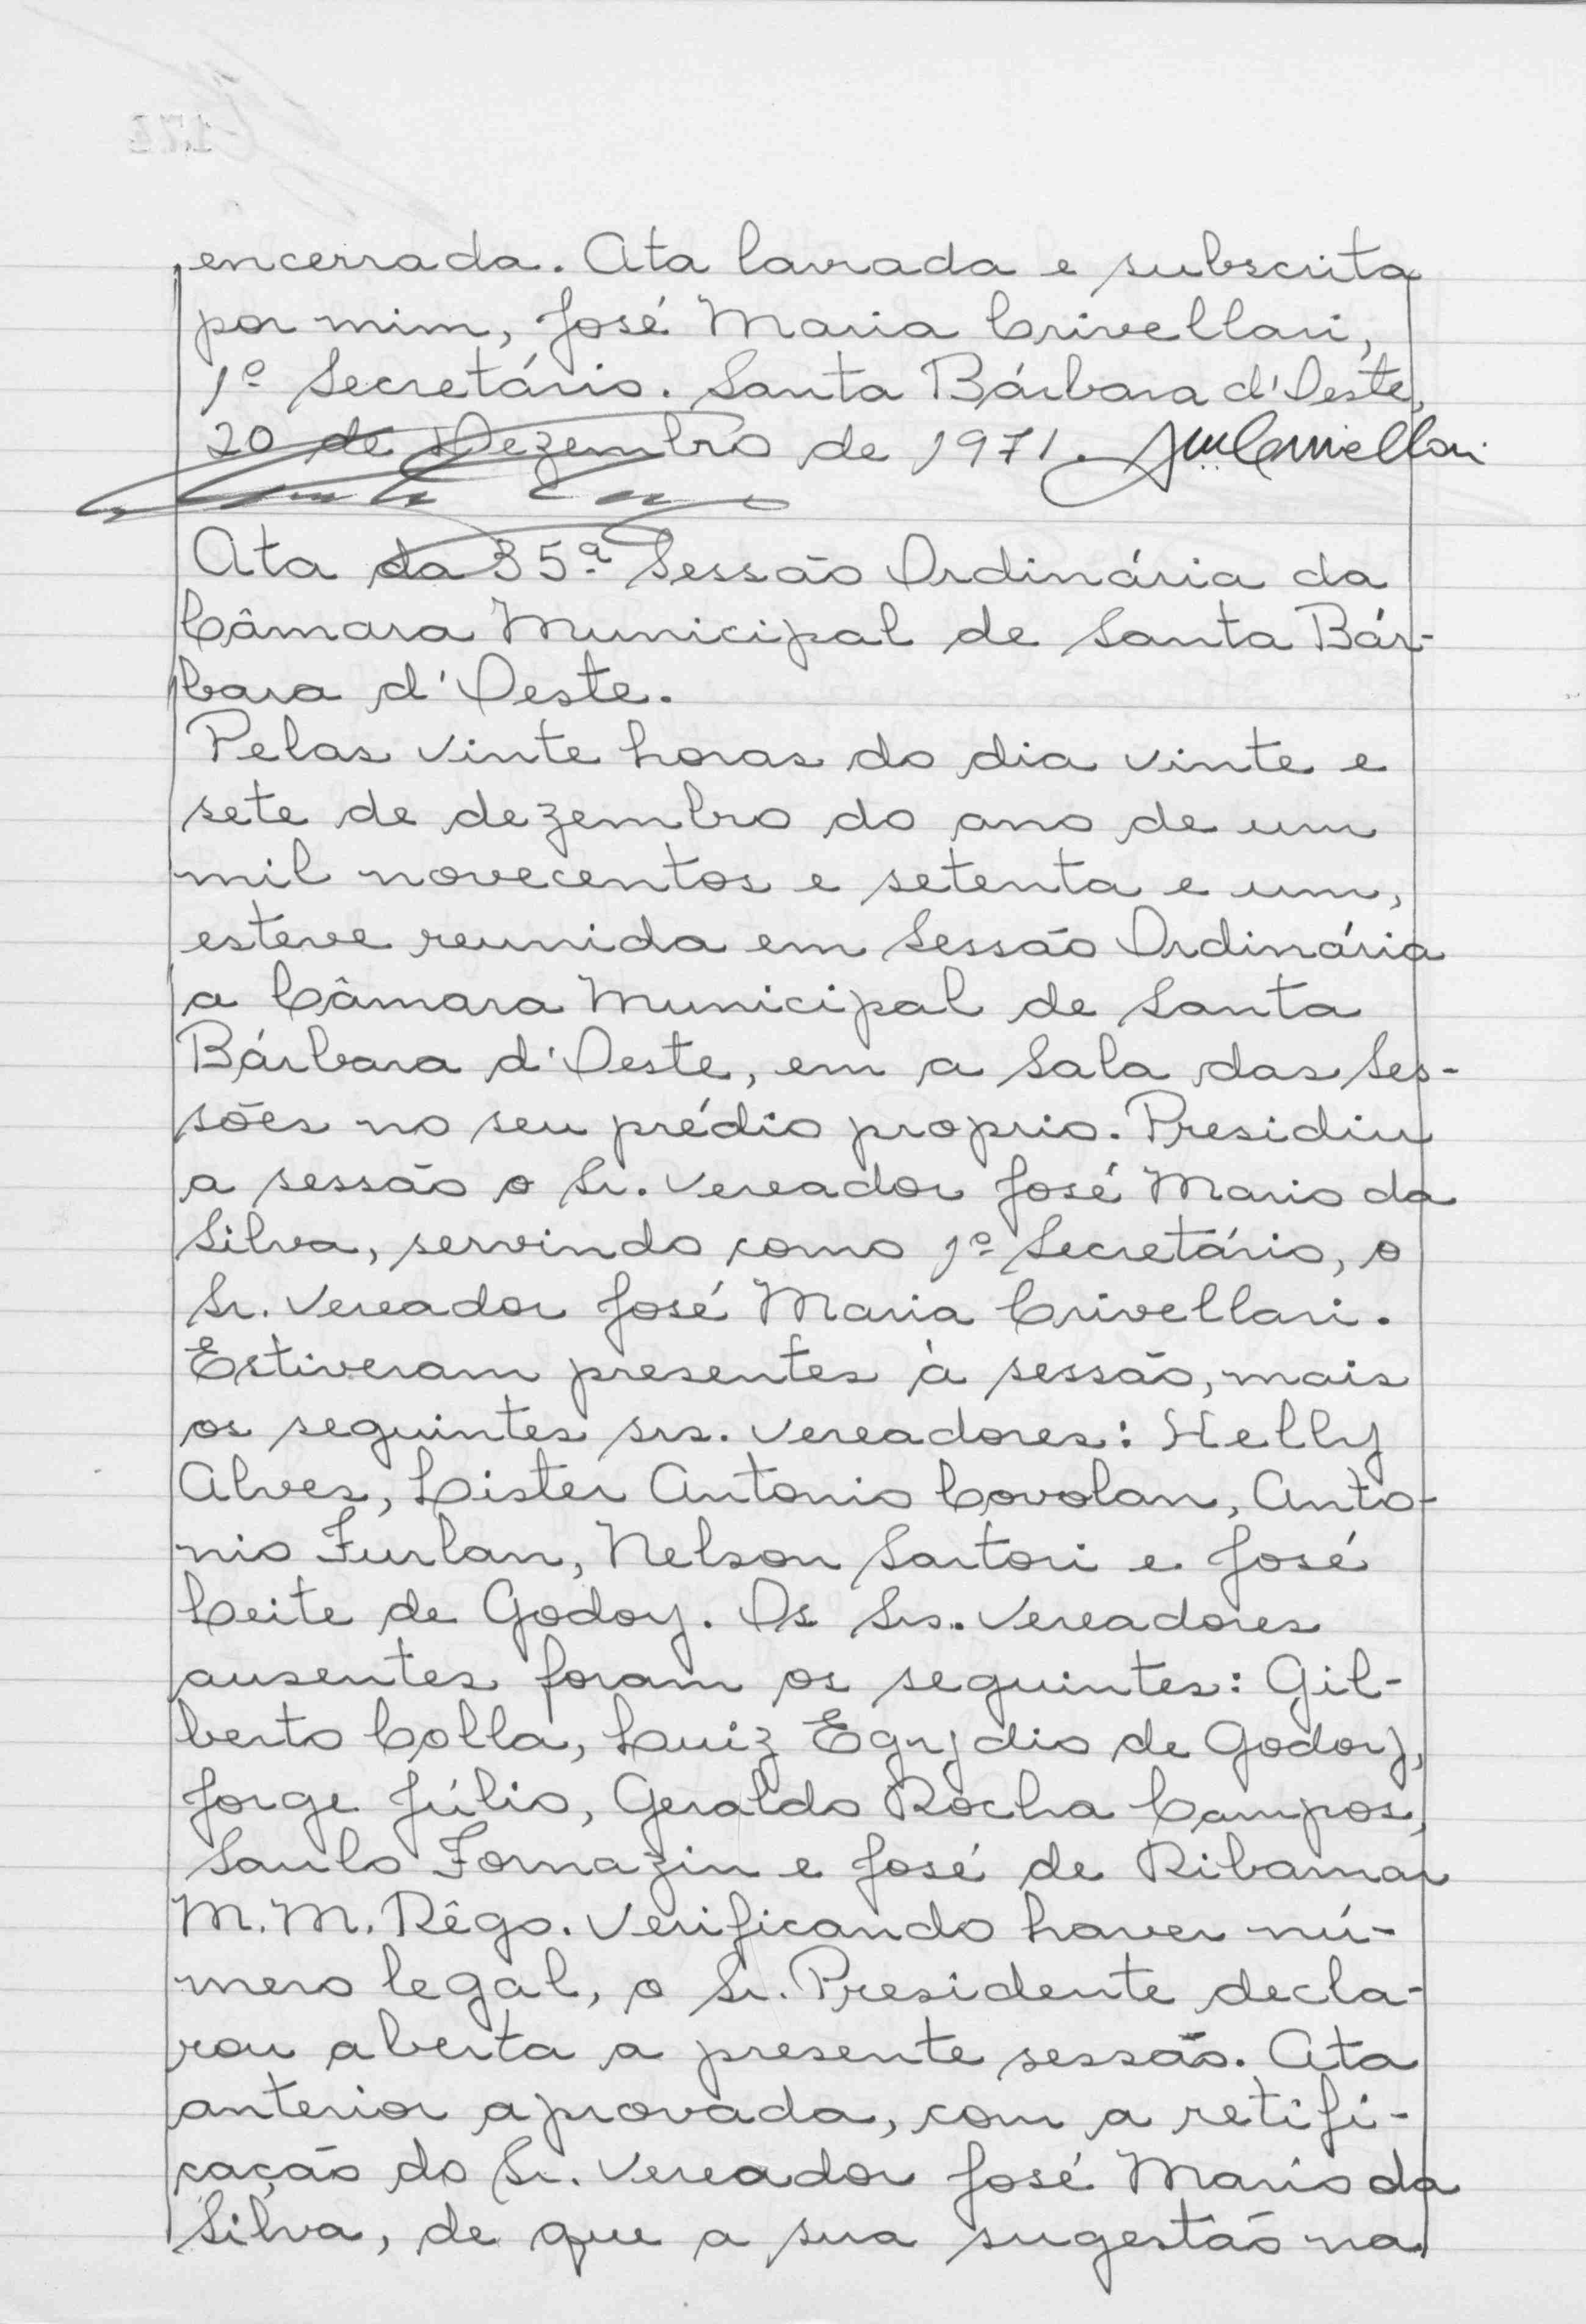 encerrada. Ata lavrada e subscrita
por mim, José Maria Crivellari,
1º Secretário. Santa Bárbara d'Oeste,
20 de Dezembro de 1971. JMCrivellari
Ata da 35ª Sessão Ordinária da
Câmara Municipal de Santa Bár-
bara d'Oeste.
Pelas vinte horas do dia vinte e
sete de dezembro do ano de um
mil novecentos e setenta e um,
esteve reunida em Sessão Ordinária
a Câmara Municipal de Santa
Bárbara d'Oeste, em a Sala das Ses-
sões no seu prédio proprio. Presidiu
a sessão o Sr. Vereador José Mario da
Silva, servindo como 1º Secretário, o
Sr. Vereador José Maria Crivellari.
Estiveram presentes à sessão, mais
os seguintes srs. Vereadores: Helly
Alves, Lister Antonio Covolan, Anto-
nio Furlan, Nelson Sartori e José
Leite de Godoy. Os Srs. Vereadores
ausentes foram os seguintes: Gil-
berto Colla, Luiz Egydio de Godoy,
Jorge Júlio, Geraldo Rocha Campos,
Saulo Fornazin e José de Ribamar
M. M. Rêgo. Verificando haver nú-
mero legal, o Sr. Presidente decla-
rou aberta a presente sessão. Ata
anterior aprovada, com a retifi-
cação do Sr. Vereador José Mario da
Silva, de que a sua sugestão na